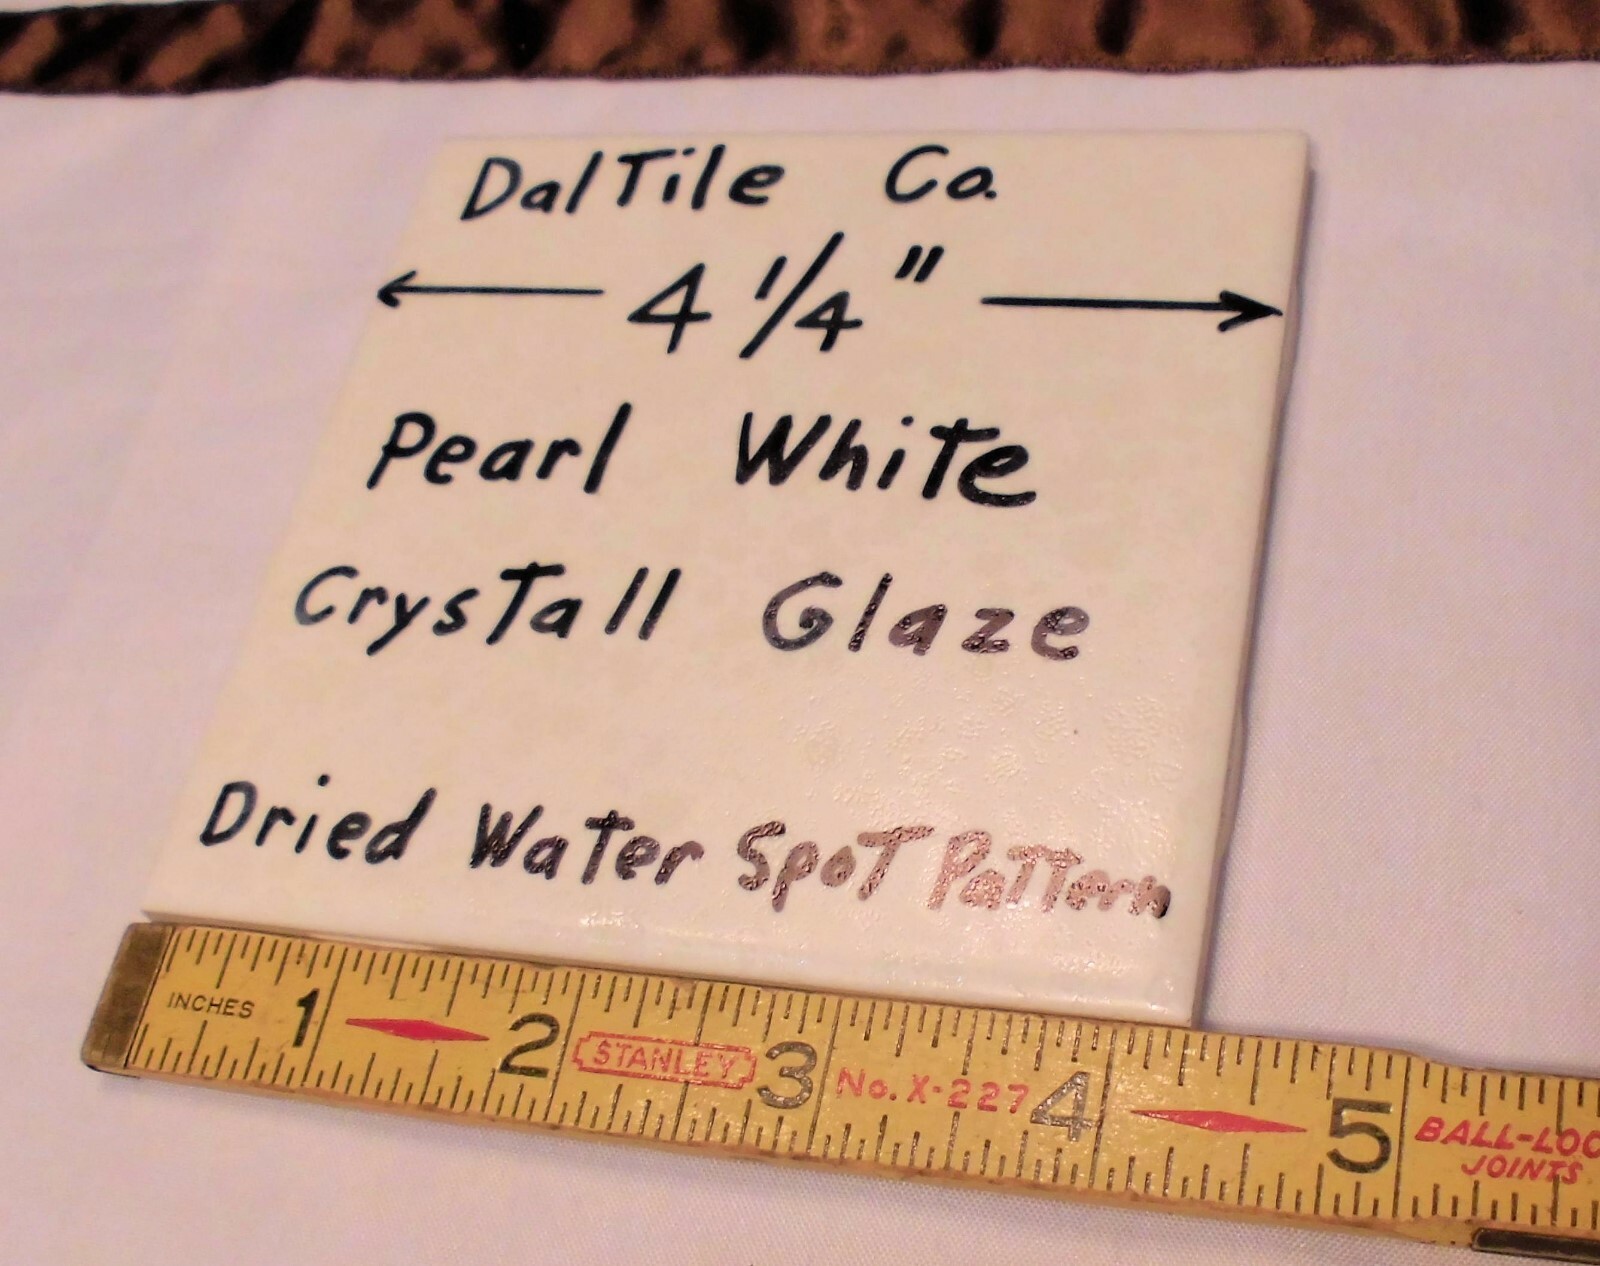 DalTile Co.
4 1/4"
Pearl White
Crystall Glaze
Dried Water Spot Pattern
INCHES 1 2 STANLEY 3 No. X-227 4 5 BALL-LOC
JOINTS